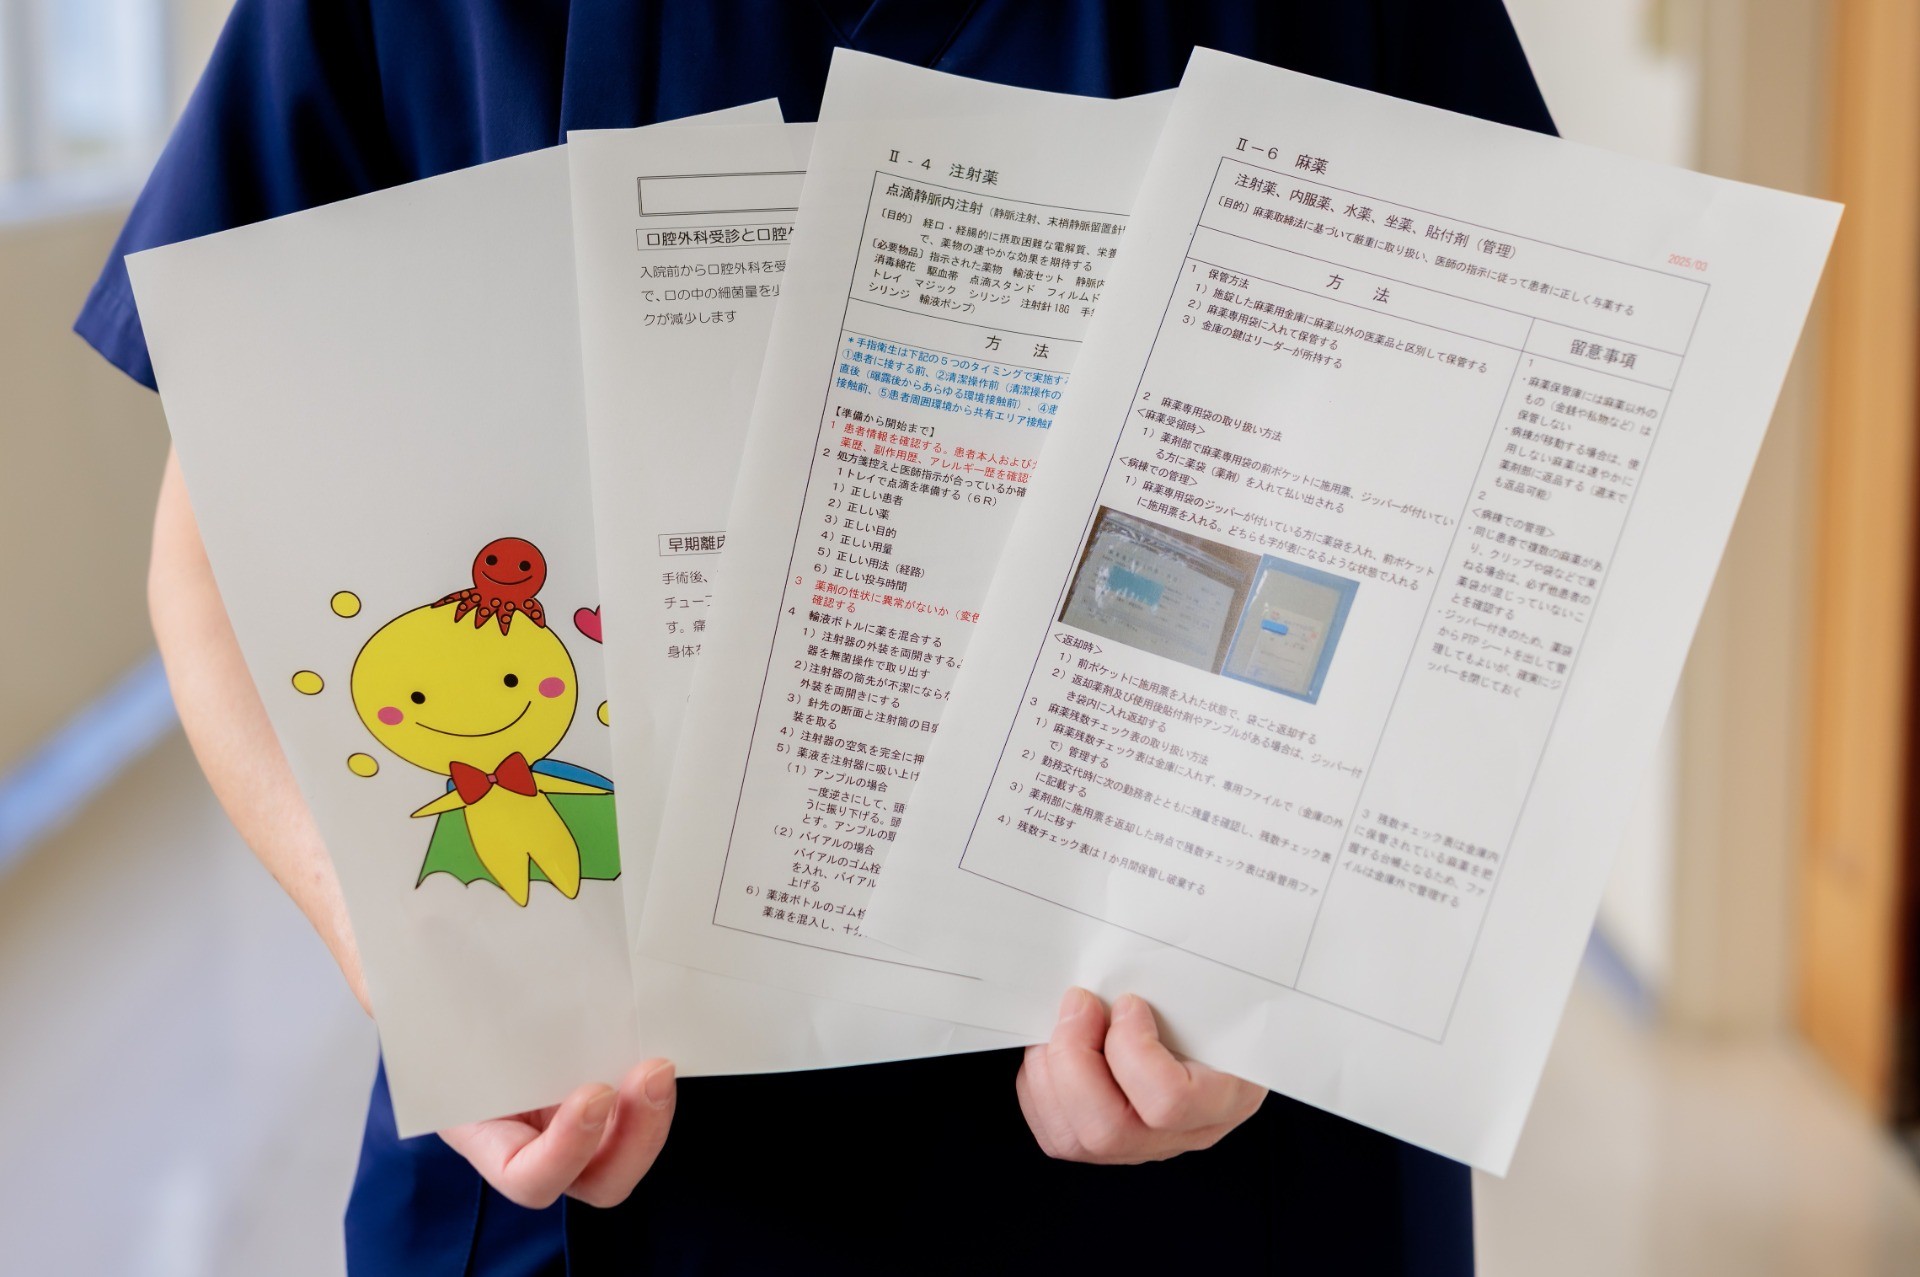 口腔外科受診と口腔
入院前から口腔外科を受
で、口の中の細菌量を
クが減少します
早期離床
手術後、
チューブ
す。痛
身体を
Ⅱ-4 注射薬
点滴静脈内注射（静脈注射、末梢静脈留置針
［目的］ 経口・経腸的に摂取困難な電解質、栄養
で、薬物の速やかな効果を期待する
［必要物品］指示された薬物 輸液セット 静脈内
消毒綿花 駆血帯 点滴スタンド フィルムド
トレイ マジック シリンジ 注射針18G 手
シリンジ 輸液ポンプ）
方 法
＊手指衛生は下記の５つのタイミングで実施す
①患者に接する前、②清潔操作前（清潔操作の
直後（曝露後からあらゆる環境接触前）、④患
接触前、⑤患者周囲環境から共有エリア接触前
【準備から開始まで】
1 患者情報を確認する。患者本人および
薬歴、副作用歴、アレルギー歴を確認
2 処方箋控えと医師指示が合っているか確
1トレイで点滴を準備する（６R）
1）正しい患者
2）正しい薬
3）正しい目的
4）正しい用量
5）正しい用法（経路）
6）正しい投与時間
3 薬剤の性状に異常がないか（変色
確認する
4 輸液ボトルに薬を混合する
1）注射器の外装を両開きする
器を無菌操作で取り出す
2)注射器の筒先が不潔にならな
外装を両開きにする
3）針先の断面と注射筒の目盛
装を取る
4）注射器の空気を完全に押
5）薬液を注射器に吸い上げ
（1）アンプルの場合
一度逆さにして、頭
うに振り下げる。頭
とす。アンプルの頸
（2）バイアルの場合
バイアルのゴム栓
を入れ、バイアル
上げる
6）薬液ボトルのゴム栓
薬液を混入し、十分
Ⅱ－6 麻薬
2025/03
注射薬、内服薬、水薬、坐薬、貼付剤（管理）
［目的］麻薬取締法に基づいて厳重に取り扱い、医師の指示に従って患者に正しく与薬する
方 法
1 保管方法
1）施錠した麻薬用金庫に麻薬以外の医薬品と区別して保管する
2）麻薬専用袋に入れて保管する
3）金庫の鍵はリーダーが所持する
2 麻薬専用袋の取り扱い方法
＜麻薬受領時＞
1）薬剤部で麻薬専用袋の前ポケットに施用票、ジッパーが付いてい
る方に薬袋（薬剤）を入れて払い出される
＜病棟での管理＞
1）麻薬専用袋のジッパーが付いている方に薬袋を入れ、前ポケット
に施用票を入れる。どちらも字が表になるような状態で入れる
＜返却時＞
1）前ポケットに施用票を入れた状態で、袋ごと返却する
2）返却薬剤及び使用後貼付剤やアンプルがある場合は、ジッパー付
き袋内に入れ返却する
3 麻薬残数チェック表の取り扱い方法
1）麻薬残数チェック表は金庫に入れず、専用ファイルで（金庫の外
で）管理する
2）勤務交代時に次の勤務者とともに残量を確認し、残数チェック表
に記載する
3）薬剤部に施用票を返却した時点で残数チェック表は保管用ファ
イルに移す
4）残数チェック表は１か月間保管し破棄する
留意事項
1
・麻薬保管庫には麻薬以外の
もの（金銭や私物など）は
保管しない
・病棟が移動する場合は、使
用しない麻薬は速やかに
薬剤部に返品する（週末で
も返品可能）
2
＜病棟での管理＞
・同じ患者で複数の麻薬があ
り、クリップや袋などで束
ねる場合は、必ず他患者の
薬袋が混じっていないこ
とを確認する
・ジッパー付きのため、薬袋
からPTPシートを出して管
理してもよいが、確実にジ
ッパーを閉じておく
3 残数チェック表は金庫内
に保管されている麻薬を把
握する台帳となるため、ファ
イルは金庫外で管理する